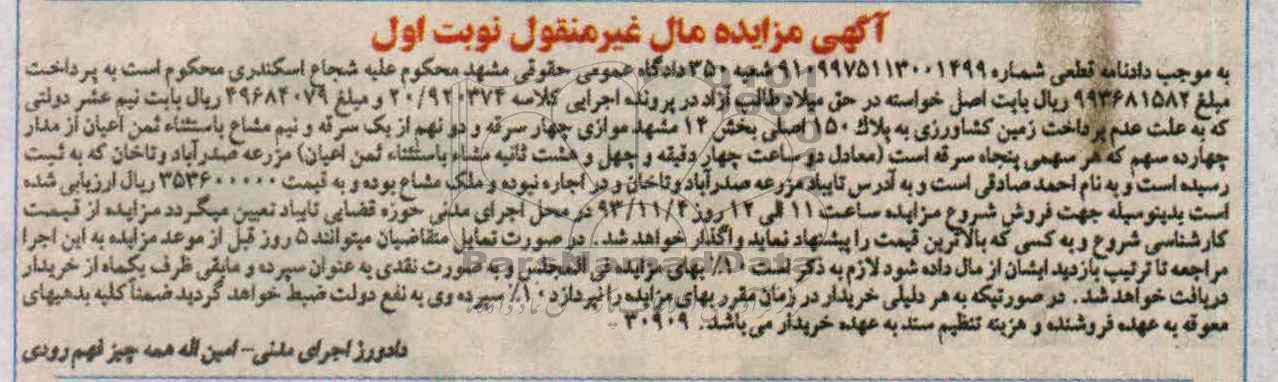 آگهی مزایده مال غیرمنقول نوبت اول
به موجب دادنامه قطعی شماره ۹۱۰۹۹۷۵۱۱۳۰۰۱۴۹۹ شعبه ۳۵۰ دادگاه عمومی حقوقی مشهد محکوم علیه شجاع اسکندری محکوم است به پرداخت
مبلغ ۹۹۳۶۸۱۵۸۲ ریال بابت اصل خواسته در حق میلاد طالب آزاد در پرونده اجرایی کلاسه ۲۰/۹۲۰۳۷۴ و مبلغ ۴۹۶۸۴۰۷۹ ریال بابت نیم عشر دولتی
که به علت عدم پرداخت زمین کشاورزی به پلاك ۱۵۰ اصلی بخش ۱۴ مشهد موازی چهار سرقه و دو نهم از یک سرقه و نیم مشاع باستثناء ثمن اعیان از مدار
چهارده سهم که هر سهمی پنجاه سرقه است (معادل دو ساعت چهار دقیقه و چهل و هشت ثانیه مشاع باستثناء ثمن اعیان) مزرعه صدرآباد وتاخان که به ثبت
رسیده است و به نام احمد صادقی است و به آدرس تایباد مزرعه صدرآباد وتاخان و در اجاره نبوده و ملک مشاع بوده و به قیمت ۳۵۳۶۰۰۰۰۰۰ ریال ارزیابی شده
است بدینوسیله جهت فروش شروع مزایده ساعت ۱۱ الی ۱۲ روز ۹۳/۱۱/۴ در محل اجرای مدنی حوزه قضایی تایباد تعیین میگردد مزایده از قیمت
کارشناسی شروع و به کسی که بالاترین قیمت را پیشنهاد نماید واگذار خواهد شد. در صورت تمایل متقاضیان میتوانند ۵ روز قبل از موعد مزایده به این اجرا
مراجعه تا ترتیب بازدید ایشان از مال داده شود لازم به ذکر است ۱۰٪ بهای مزایده فی المجلس و به صورت نقدی به عنوان سپرده و مابقی ظرف یکماه از خریدار
دریافت خواهد شد. در صورتیکه به هر دلیلی خریدار در زمان مقرر بهای مزایده را نپردازد ۱۰٪ سپرده وی به نفع دولت ضبط خواهد گردید ضمناً کلیه بدهیهای
معوقه به عهده فروشنده و هزینه تنظیم سند به عهده خریدار می باشد. ۳۰۹۰۹
دادورز اجرای مدنی- امین اله همه چیز فهم رودی
ParsNamadData